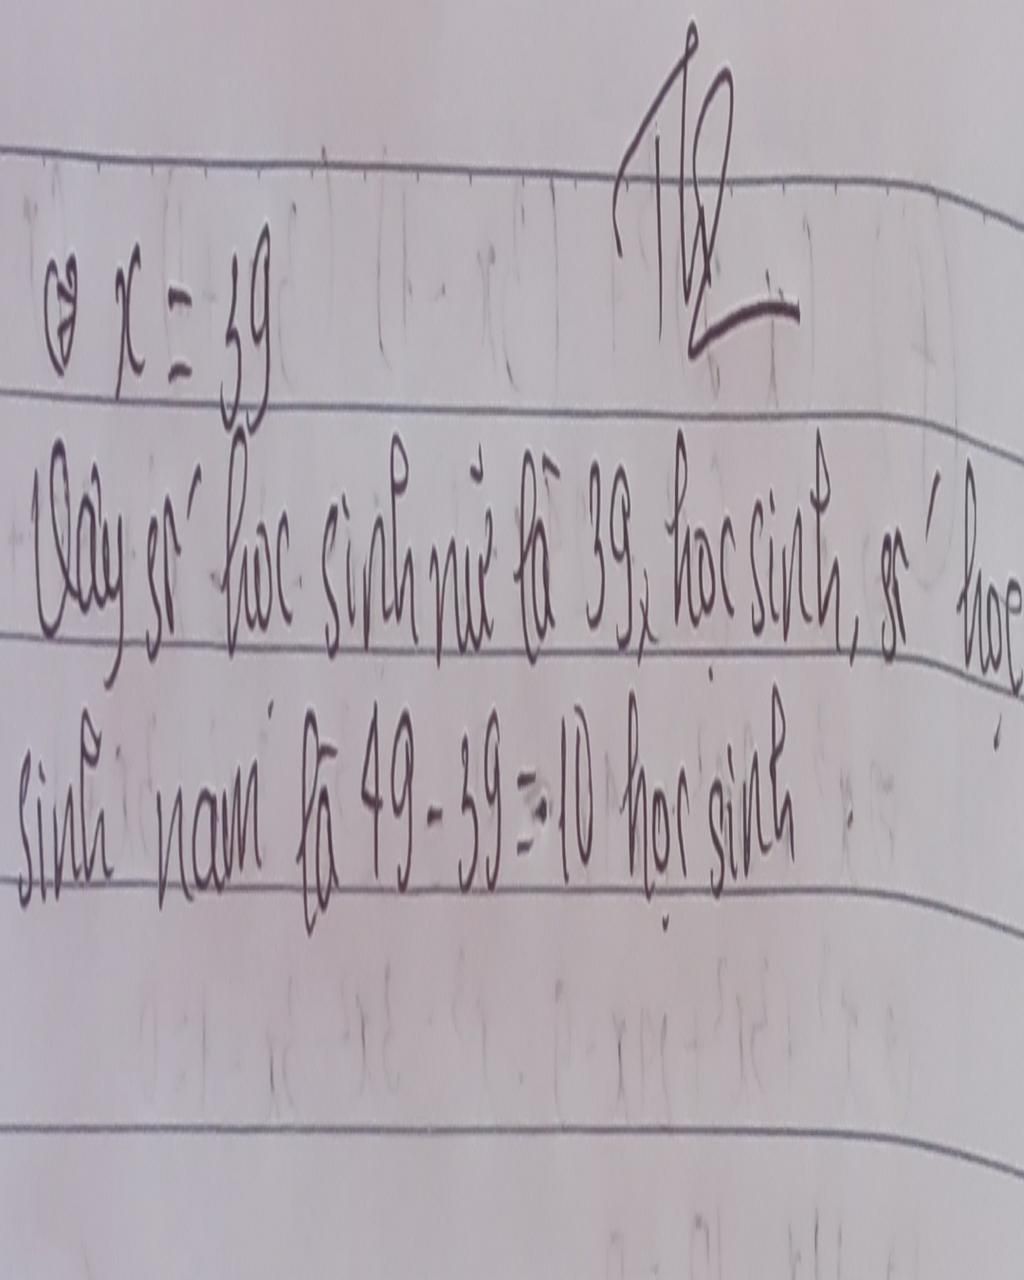 ⇔ x = 39
Vậy số học sinh nữ là 39 học sinh, số học
sinh nam là 49 - 39 = 10 học sinh